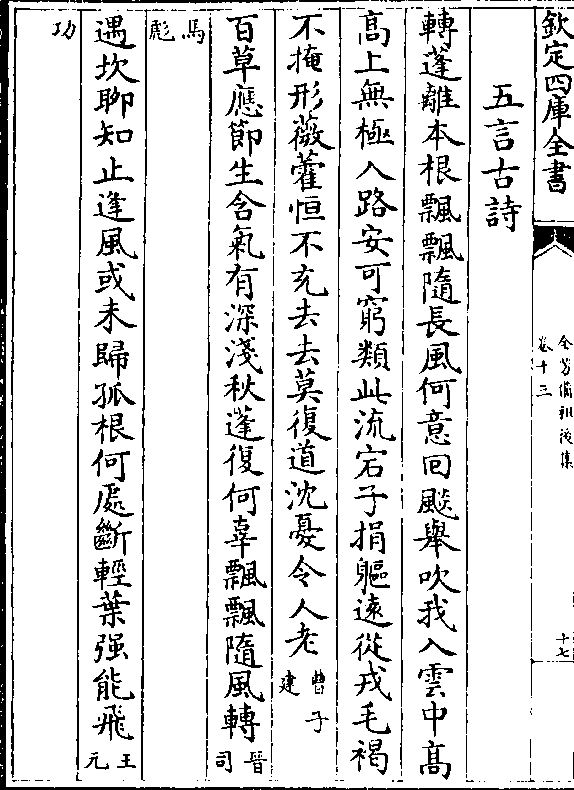 欽定四庫全書
全芳備祖後集
卷十三
十七
五言古詩
轉蓬離本根飄飄隨長風何意回飈舉吹我入雲中髙
髙上無極入路安可窮類此流宕子捐軀逺從戎毛褐
不掩形薇藿恒不充去去莫復道沈憂令人老曹子建
百草應節生含氣有深淺秋蓬復何辜飄飄隨風轉晉司
馬彪
遇坎聊知止逢風或未歸孤根何處斷輕葉强能飛王元
功